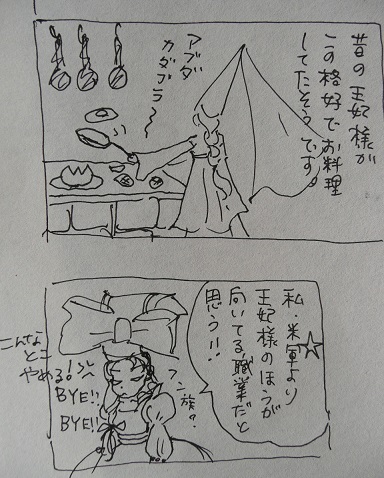 昔の王妃様が
この格好でお料理
してたそうです。
アブダ
カダブラ〜
私・米軍より
王妃様のほうが
向いてる職業だと
思う!!
フン族?
こんな
とこ
やめる!
BYE!!
BYE!!